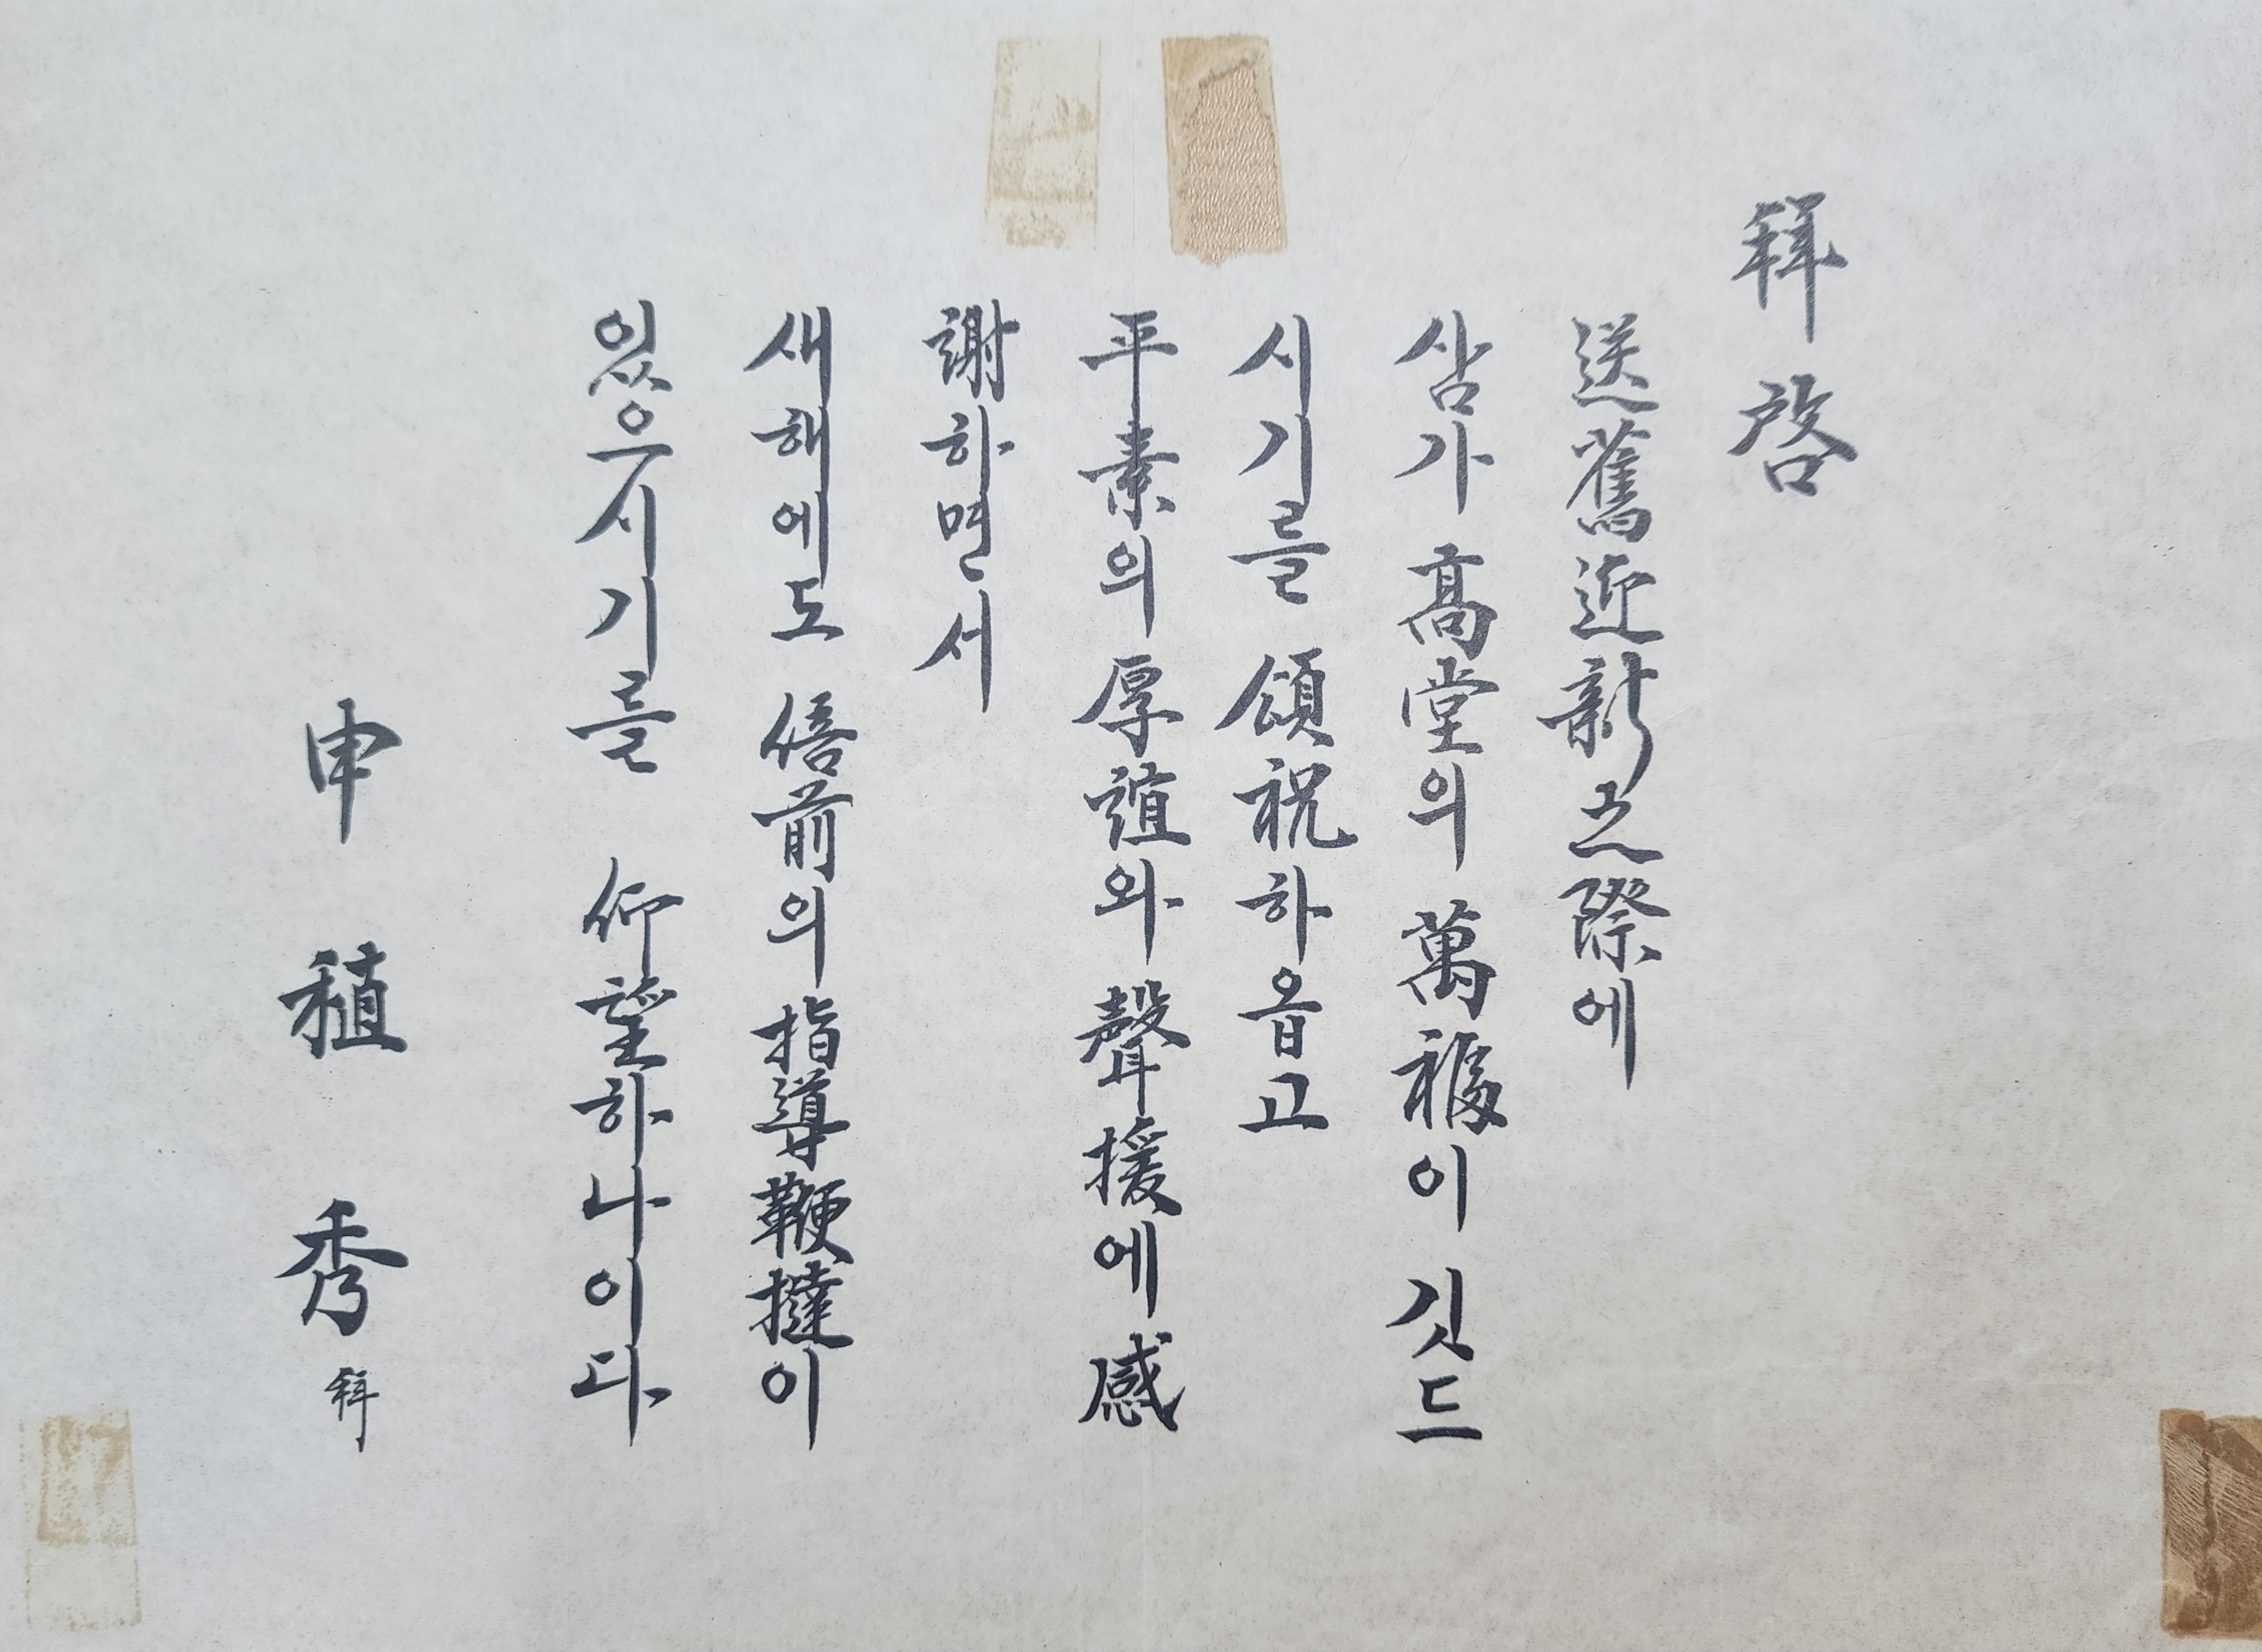 拜啓
送舊迎新之際에
삼가 高堂의 萬福이 깃드
시기를 頌祝하옵고
平素의 厚誼와 聲援에 感
謝하면서
새해에도 倍前의 指導鞭撻이
있으시기를 仰望하나이다
申稙秀 拜